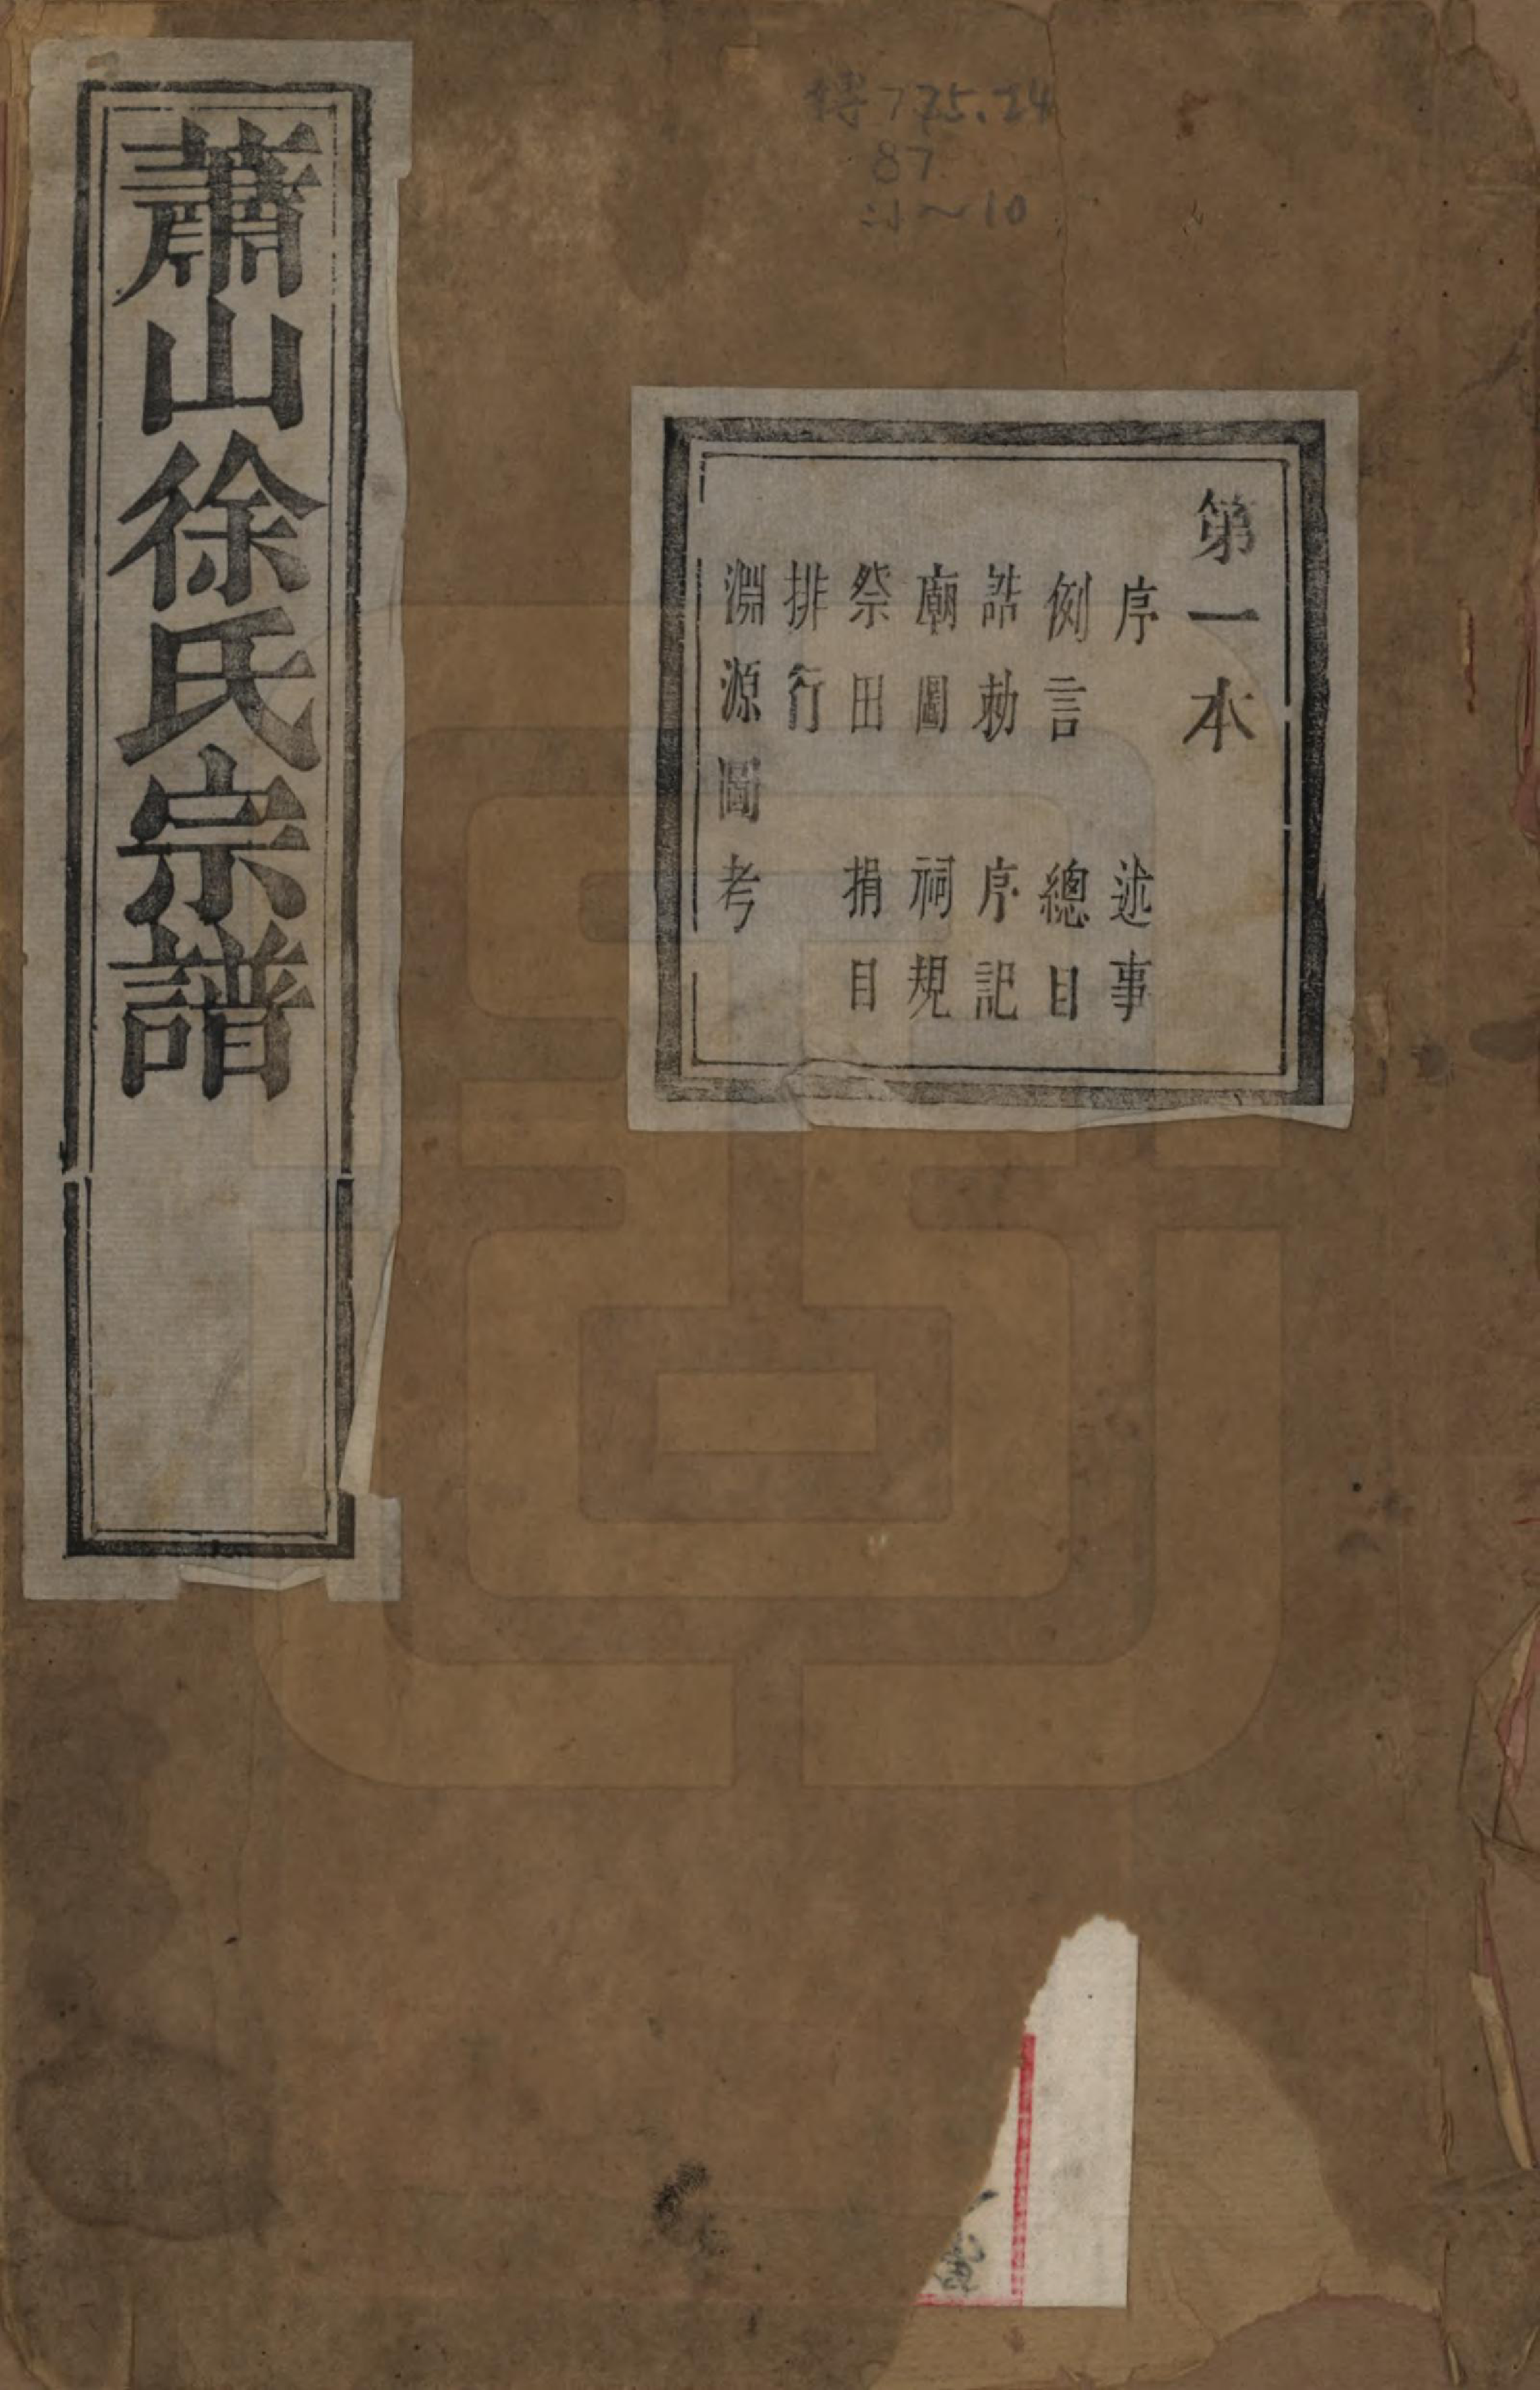 蕭山徐氏宗譜
第一本
序 述事
例言 總目
誥勅 序記
廟圖 祠規
祭田 捐目
排行
淵源圖考
775.24
87